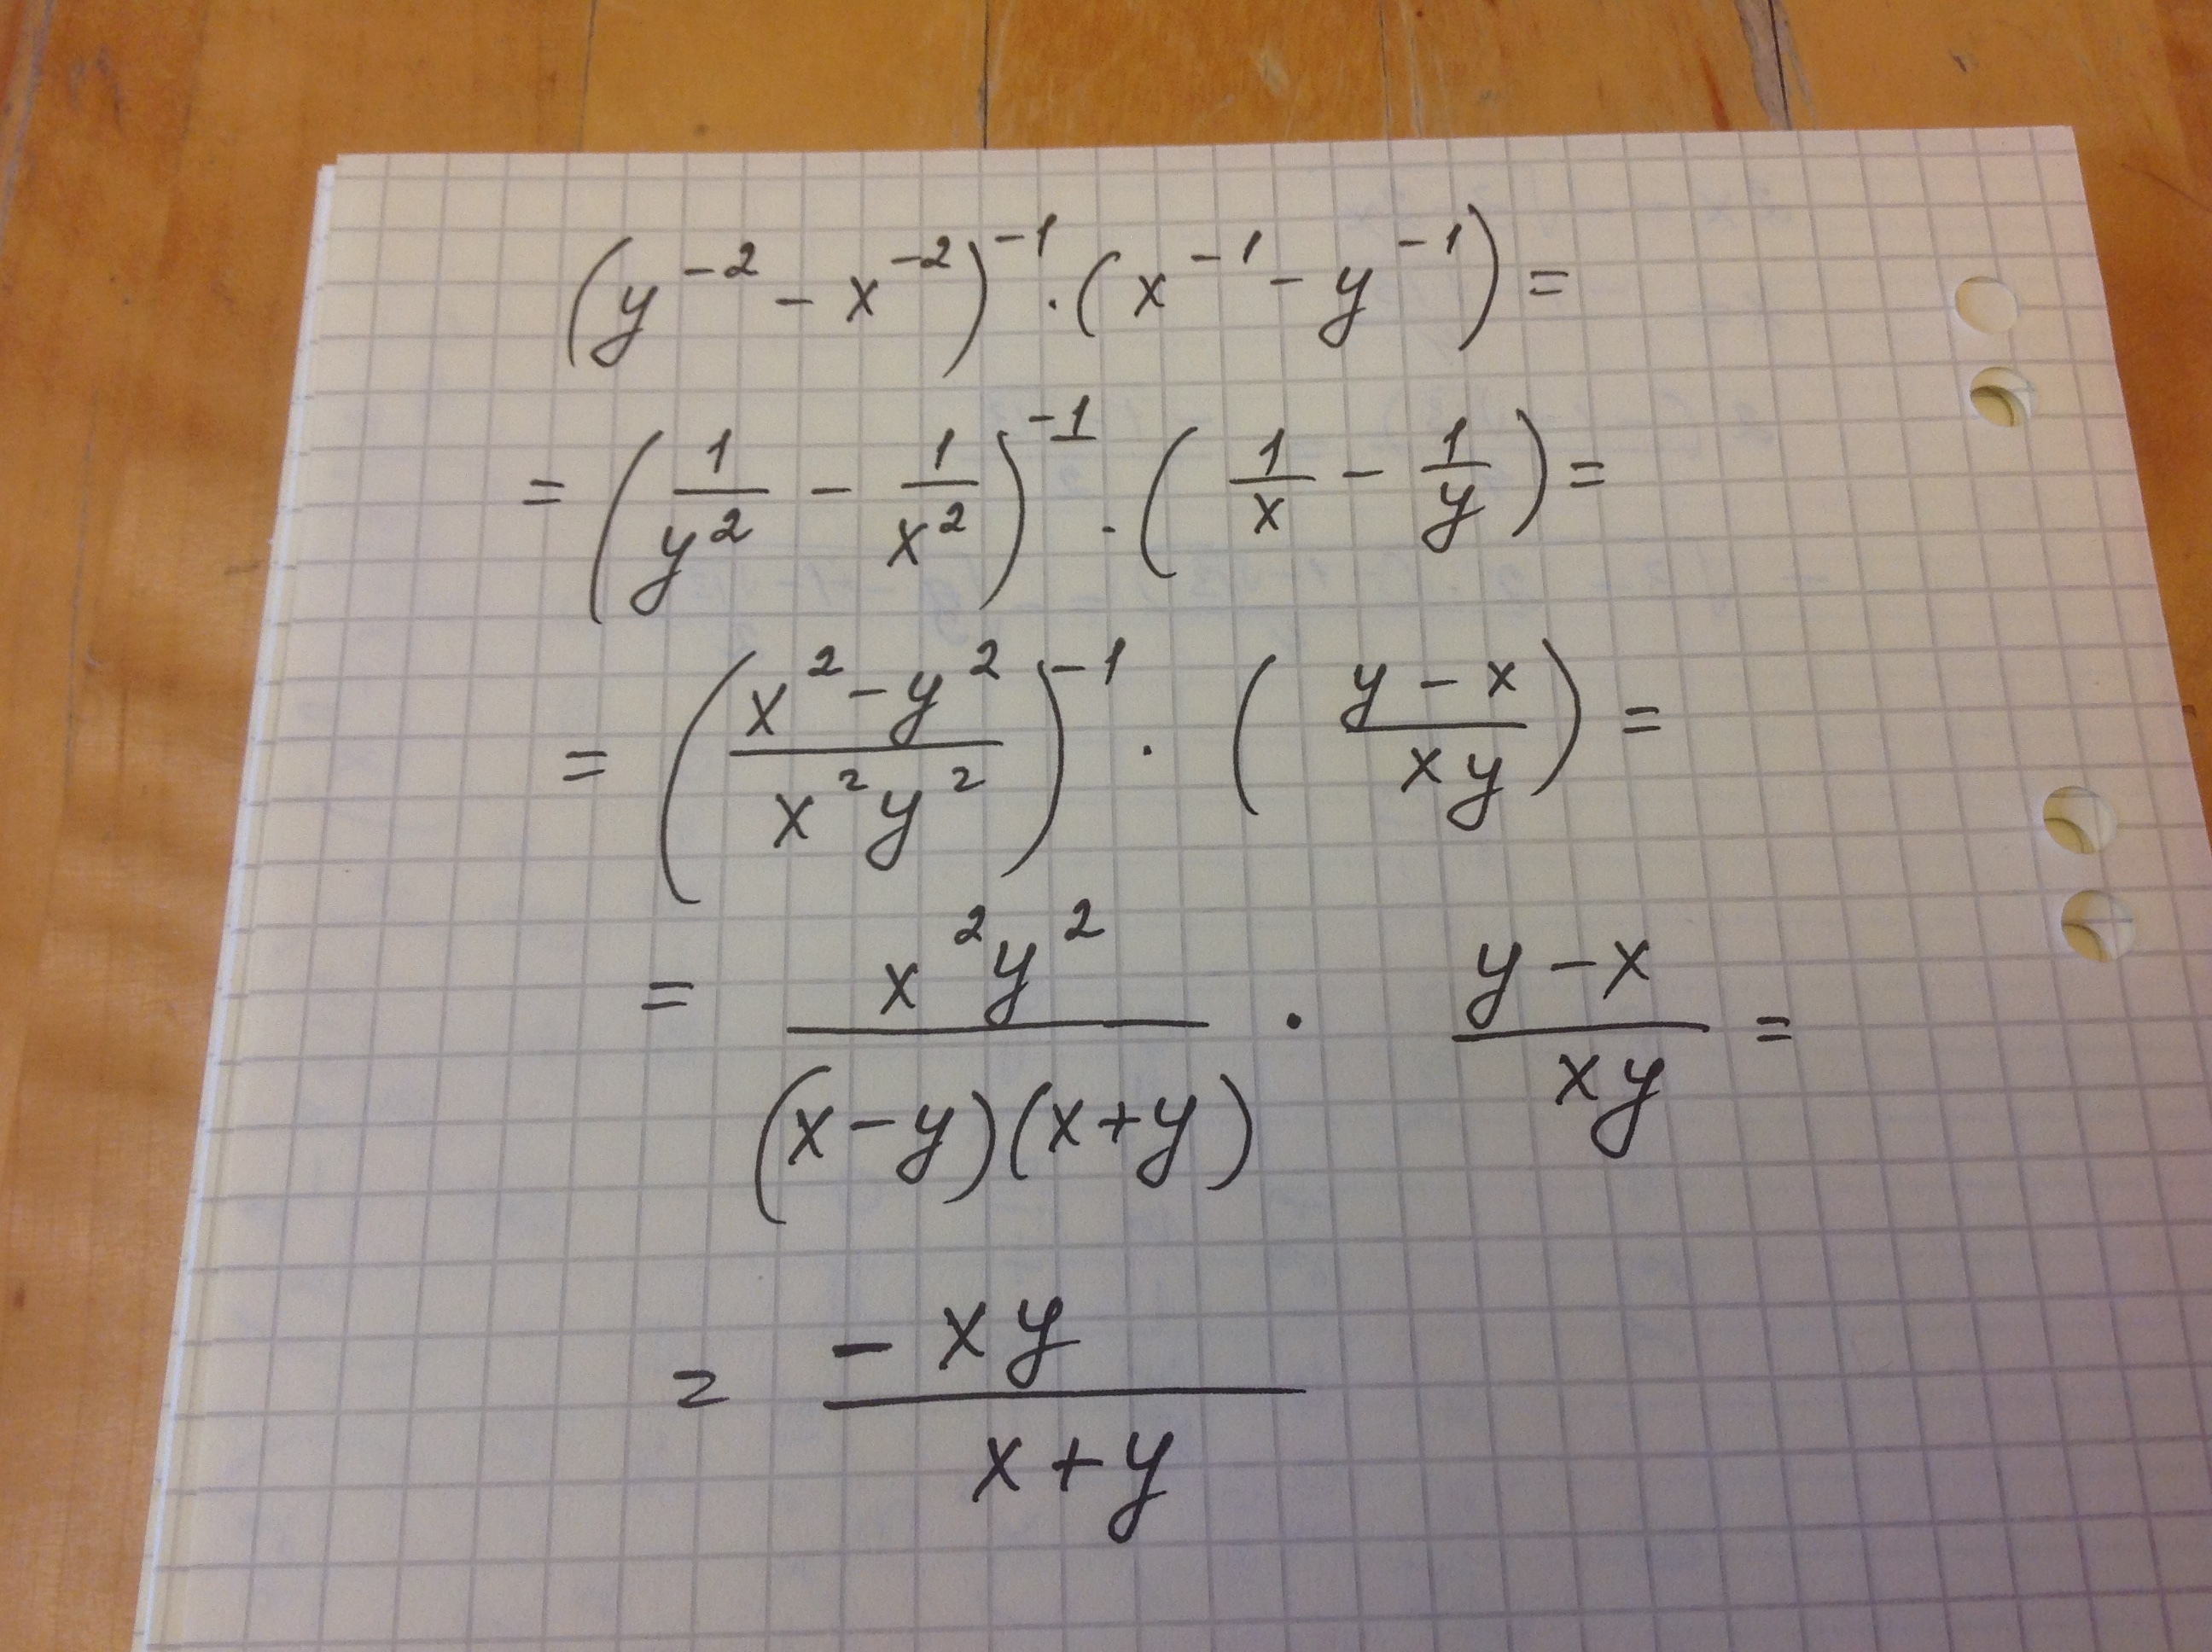 (y⁻² − x⁻²)⁻¹ · (x⁻¹ − y⁻¹) =
= (1/y² − 1/x²)⁻¹ · (1/x − 1/y) =
= ((x² − y²)/(x²y²))⁻¹ · ((y − x)/(xy)) =
= x²y²/((x − y)(x + y)) · (y − x)/(xy) =
= −xy/(x + y)